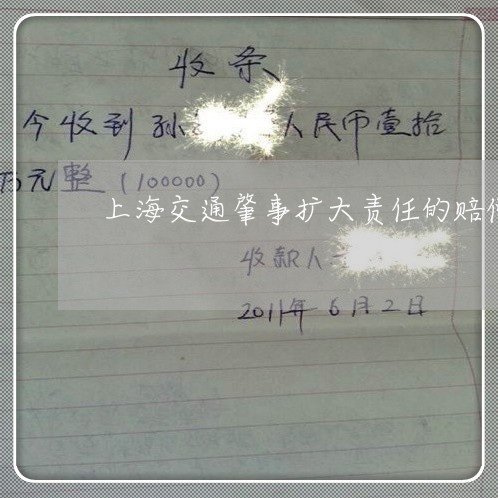 收条
今收到孙 人民币壹拾
万元整(100000)
上海交通肇事扩大责任的赔偿
收款人
2011年6月2日